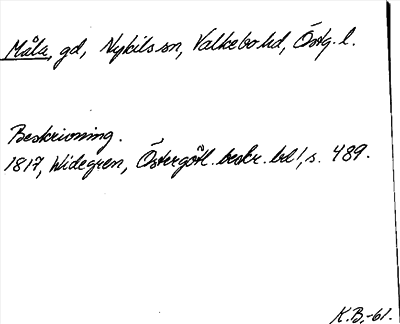 Måla, gd, Nykils sn, Valkebo hd, Östg. l.
Beskrivning.
1817, Widegren, Östergötl. beskr. bd 1, s. 489.
K.B.-61.